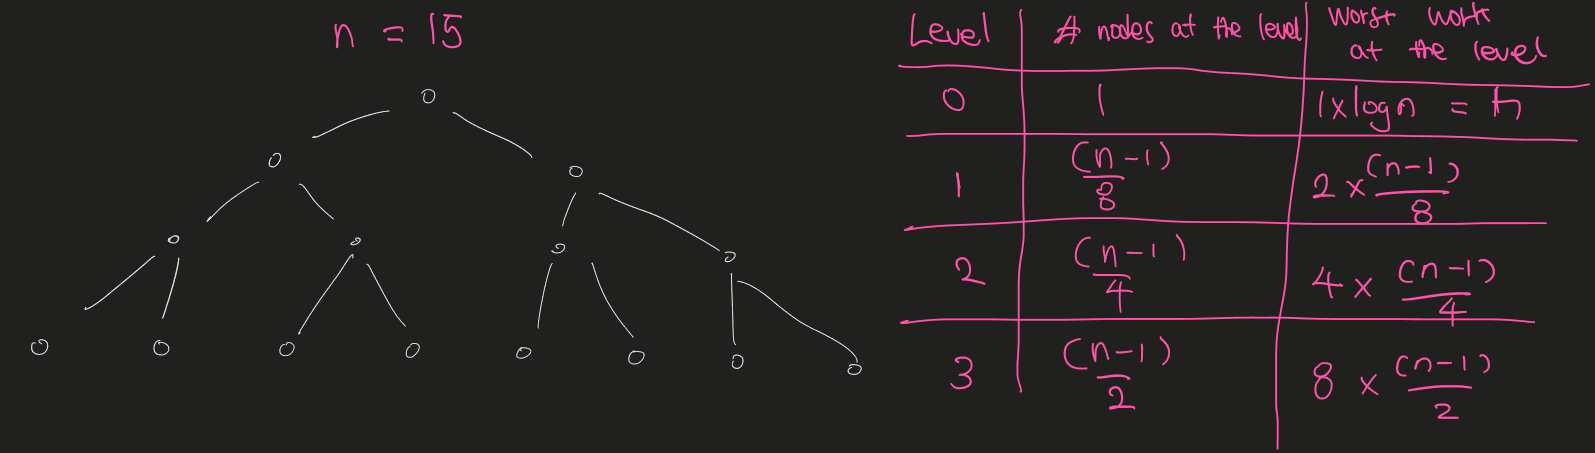 n = 15
Level # nodes at the level Worst work at the level
0 1 1×logn = h
1 (n-1)/8 2×(n-1)/8
2 (n-1)/4 4×(n-1)/4
3 (n-1)/2 8×(n-1)/2